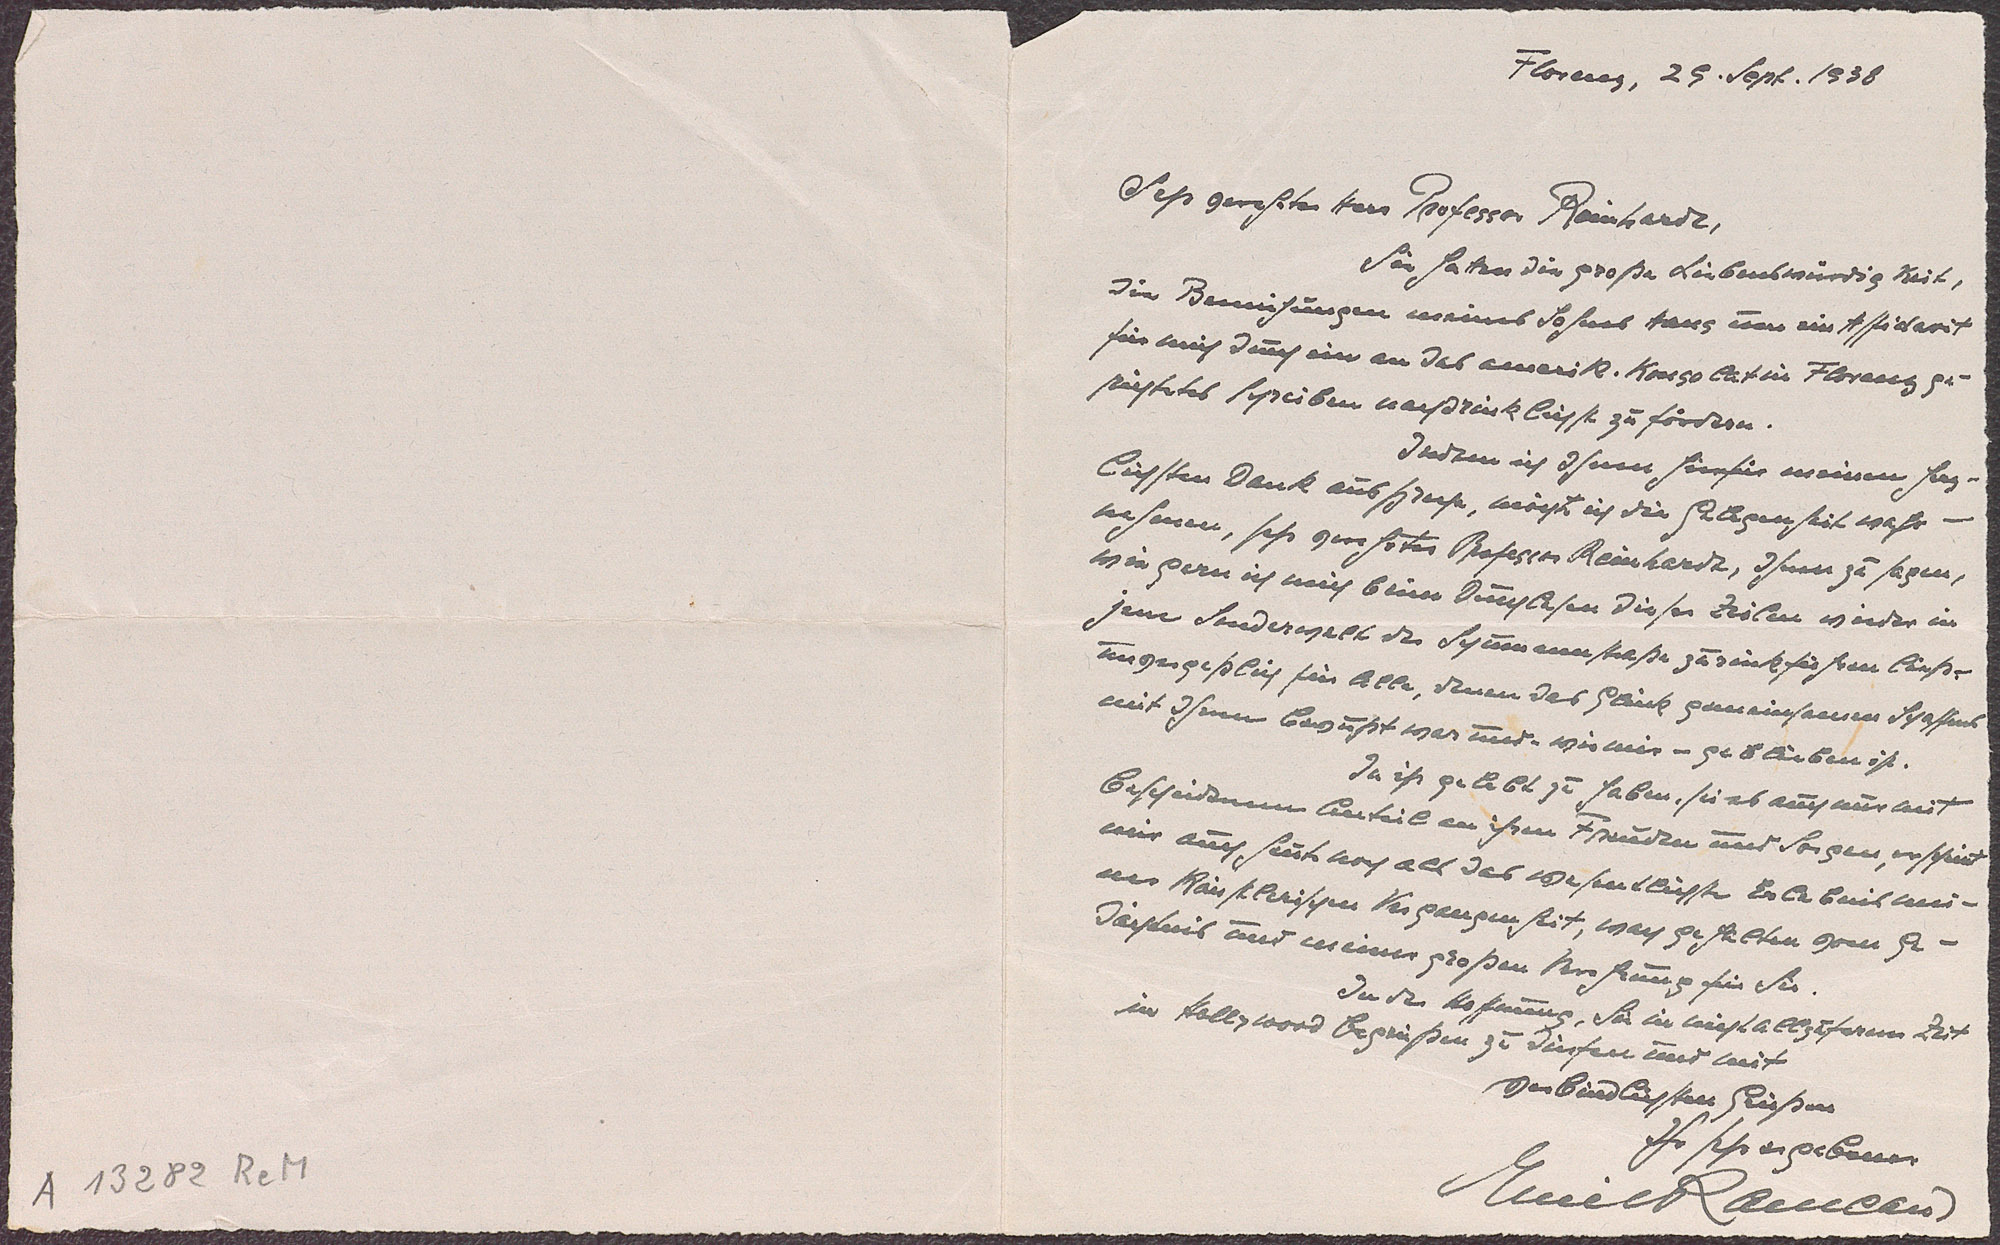 Florenz, 29. Sept. 1938
Sehr verehrter Herr Professor Reinhardt,
Sie hatten die große Liebenswürdigkeit,
die Bemühungen meines Sohnes Hans um ein Affidavit
für mich durch ein an das amerik. Konsolat in Florenz ge-
richtetes Schreiben nachdrücklichst zu fördern.
Indem ich Ihnen hierfür meinen herz-
lichsten Dank ausspreche, möcht ich die Gelegenheit wahr-
nehmen, sehr verehrter Professor Reinhardt, Ihnen zu sagen,
wie gern ich mich beim Durchlesen dieser Zeilen wieder in
jene Sonderwelt der Schumannstraße zurückführen ließ -
unvergeßlich für Alle, denen das Glück gemeinsamen Schaffens
mit Ihnen bewußt war und - wie mir - geblieben ist.
In ihr gelebt zu haben, sei es auch nur mit
bescheidenem Anteil an ihren Freuden und Sorgen, erscheint
mir auch heut noch als das wesentlichste Erlebnis mei-
ner künstlerischen Vergangenheit, wach gehalten vom Ge-
dächtnis und meiner großen Verehrung für Sie.
In der Hoffnung, Sie in nicht allzuferner Zeit
in Hollywood begrüßen zu dürfen und mit
verbindlichsten Grüßen
Ihr sehr ergebener
Emil
A 13282 ReM